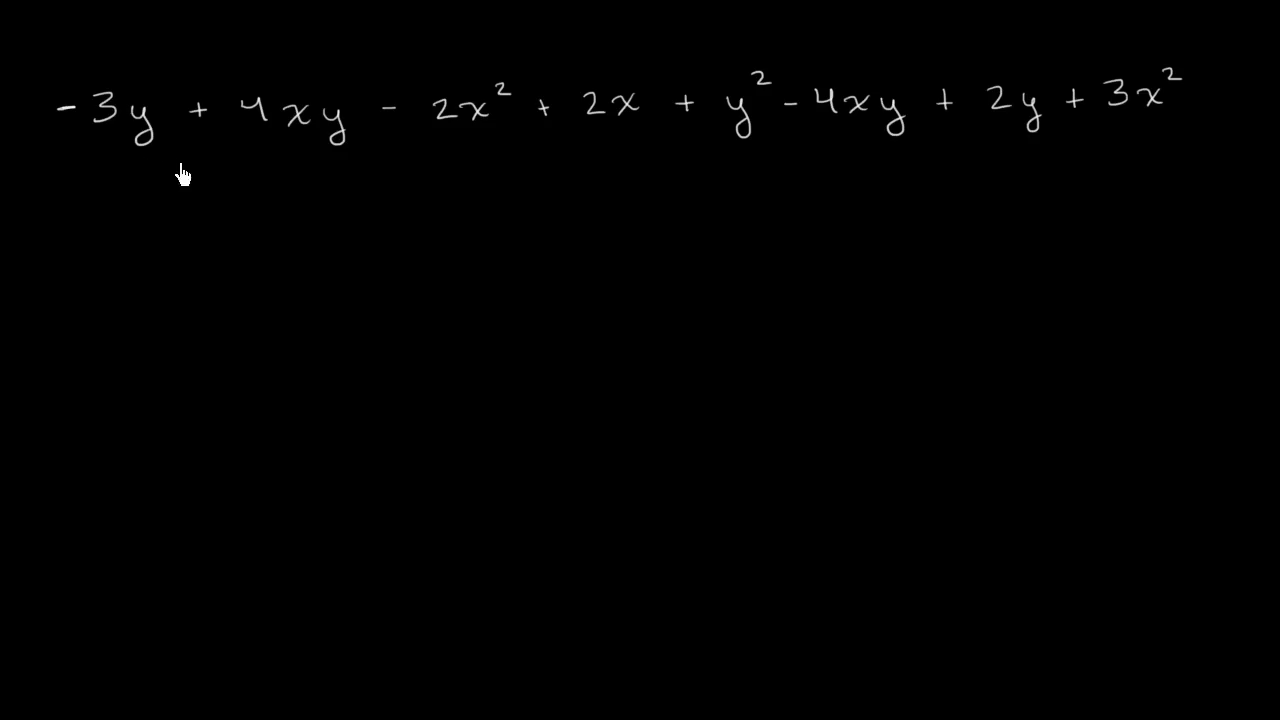 - 3y + 4xy - 2x² + 2x + y² - 4xy + 2y + 3x²